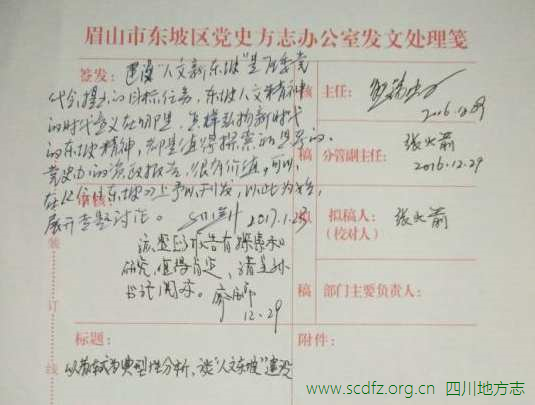 眉山市东坡区党史方志办公室发文处理笺
签发： 建设“人文新东坡”是区委党
代会提出的目标任务，东坡人文精神
的时代意义在哪里，怎样弘扬新时代
的东坡精神，都是值得探索和思考的。
党史办的资政报告，很有价值，可以
在《今日东坡》上予以刊发，以此为始，
展开专题讨论。 2017.1.23
审核：
该 报告有探索和
研究，值得肯定，请
书记阅示。
12.29
核 主任：
2016.12.29
核 分管副主任： 张火箭
2016.12.29
拟 拟稿人： 张火箭
（校对人）
稿 部门主要负责人：
标题：
以苏轼为典型性分析，谈“人文东坡”建设
附件：
装
订
线
www.scdfz.org.cn 四川地方志